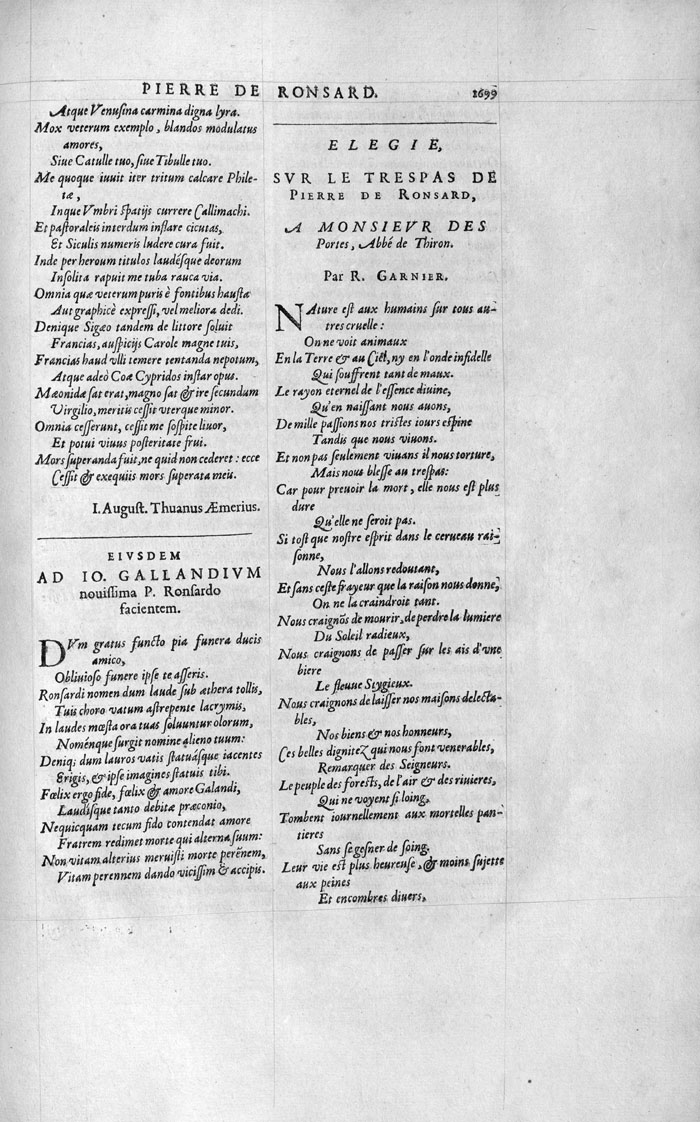 PIERRE DE RONSARD. 1699
Atque Venusina carmina digna lyra.
Mox veterum exemplo, blandos modulatus
amores,
Siue Catulle tuo, siue Tibulle tuo.
Me quoque iuuit iter tritum calcare Phile-
tæ,
Inque Vmbri spatijs currere Callimachi.
Et pastoraleis interdum inflare cicutas,
Et Siculis numeris ludere cura fuit.
Inde per heroum titulos laudésque deorum
Insolita rapuit me tuba rauca via.
Omnia quæ veterum puris è fontibus hausta
Aut graphicè expressi, vel meliora dedi.
Denique Sigæo tandem de littore soluit
Francias, auspicijs Carole magne tuis,
Francias haud vlli temere tentanda nepotum,
Atque adeò Coæ Cypridos instar opus.
Mæonidæ sat erat, magno sat & ire secundum
Virgilio, meritis cessit vterque minor.
Omnia cesserunt, cessit me sospite liuor,
Et potui viuus posteritate frui.
Mors superanda fuit, ne quid non cederet: ecce
Cessit & exequiis mors superata meis.
I. August. Thuanus Æmerius.
EIVSDEM
AD IO. GALLANDIVM
nouissima P. Ronsardo
facientem.
DVm gratus functo pia funera ducis
amico,
Obliuioso funere ipse te asseris.
Ronsardi nomen dum laude sub æthera tollis,
Tuis choro vatum astrepente lacrymis,
In laudes mœsta ora tuas soluuntur olorum,
Noménque surgit nomine alieno tuum:
Deniq; dum lauros vatis statuásque iacentes
Erigis, & ipse imagines statuis tibi.
Fœlix ergo fide, fœlix & amore Galandi,
Laudisque tanto debitæ præconio,
Nequicquam tecum fido contendat amore
Fratrem redimet morte qui alterna suum:
Non vitam alterius meruisti morte perēnem,
Vitam perennem dando vicissim & accipis.
ELEGIE,
SVR LE TRESPAS DE
PIERRE DE RONSARD,
A MONSIEVR DES
Portes, Abbé de Thiron.
Par R. GARNIER.
NAture est aux humains sur tous au-
tres cruelle:
On ne voit animaux
En la Terre & au Ciel, ny en l'onde infidelle
Qui souffrent tant de maux.
Le rayon eternel de l'essence diuine,
Qu'en naissant nous auons,
De mille passions nos tristes iours espine
Tandis que nous viuons.
Et non pas seulement viuans il nous torture,
Mais nous blesse au trespas:
Car pour preuoir la mort, elle nous est plus
dure
Qu'elle ne seroit pas.
Si tost que nostre esprit dans le cerueau rai-
sonne,
Nous l'allons redoutant,
Et sans ceste frayeur que la raison nous donne,
On ne la craindroit tant.
Nous craignōs de mourir, de perdre la lumiere
Du Soleil radieux,
Nous craignons de passer sur les ais d'vne
biere
Le fleuue Stygieux.
Nous craignons de laisser nos maisons delecta-
bles,
Nos biens & nos honneurs,
Ces belles dignitez qui nous font venerables,
Remarquer des Seigneurs.
Le peuple des forests, de l'air & des riuieres,
Qui ne voyent si loing,
Tombent iournellement aux mortelles pan-
tieres
Sans se gesner de soing.
Leur vie est plus heureuse, & moins sujette
aux peines
Et encombres diuers,